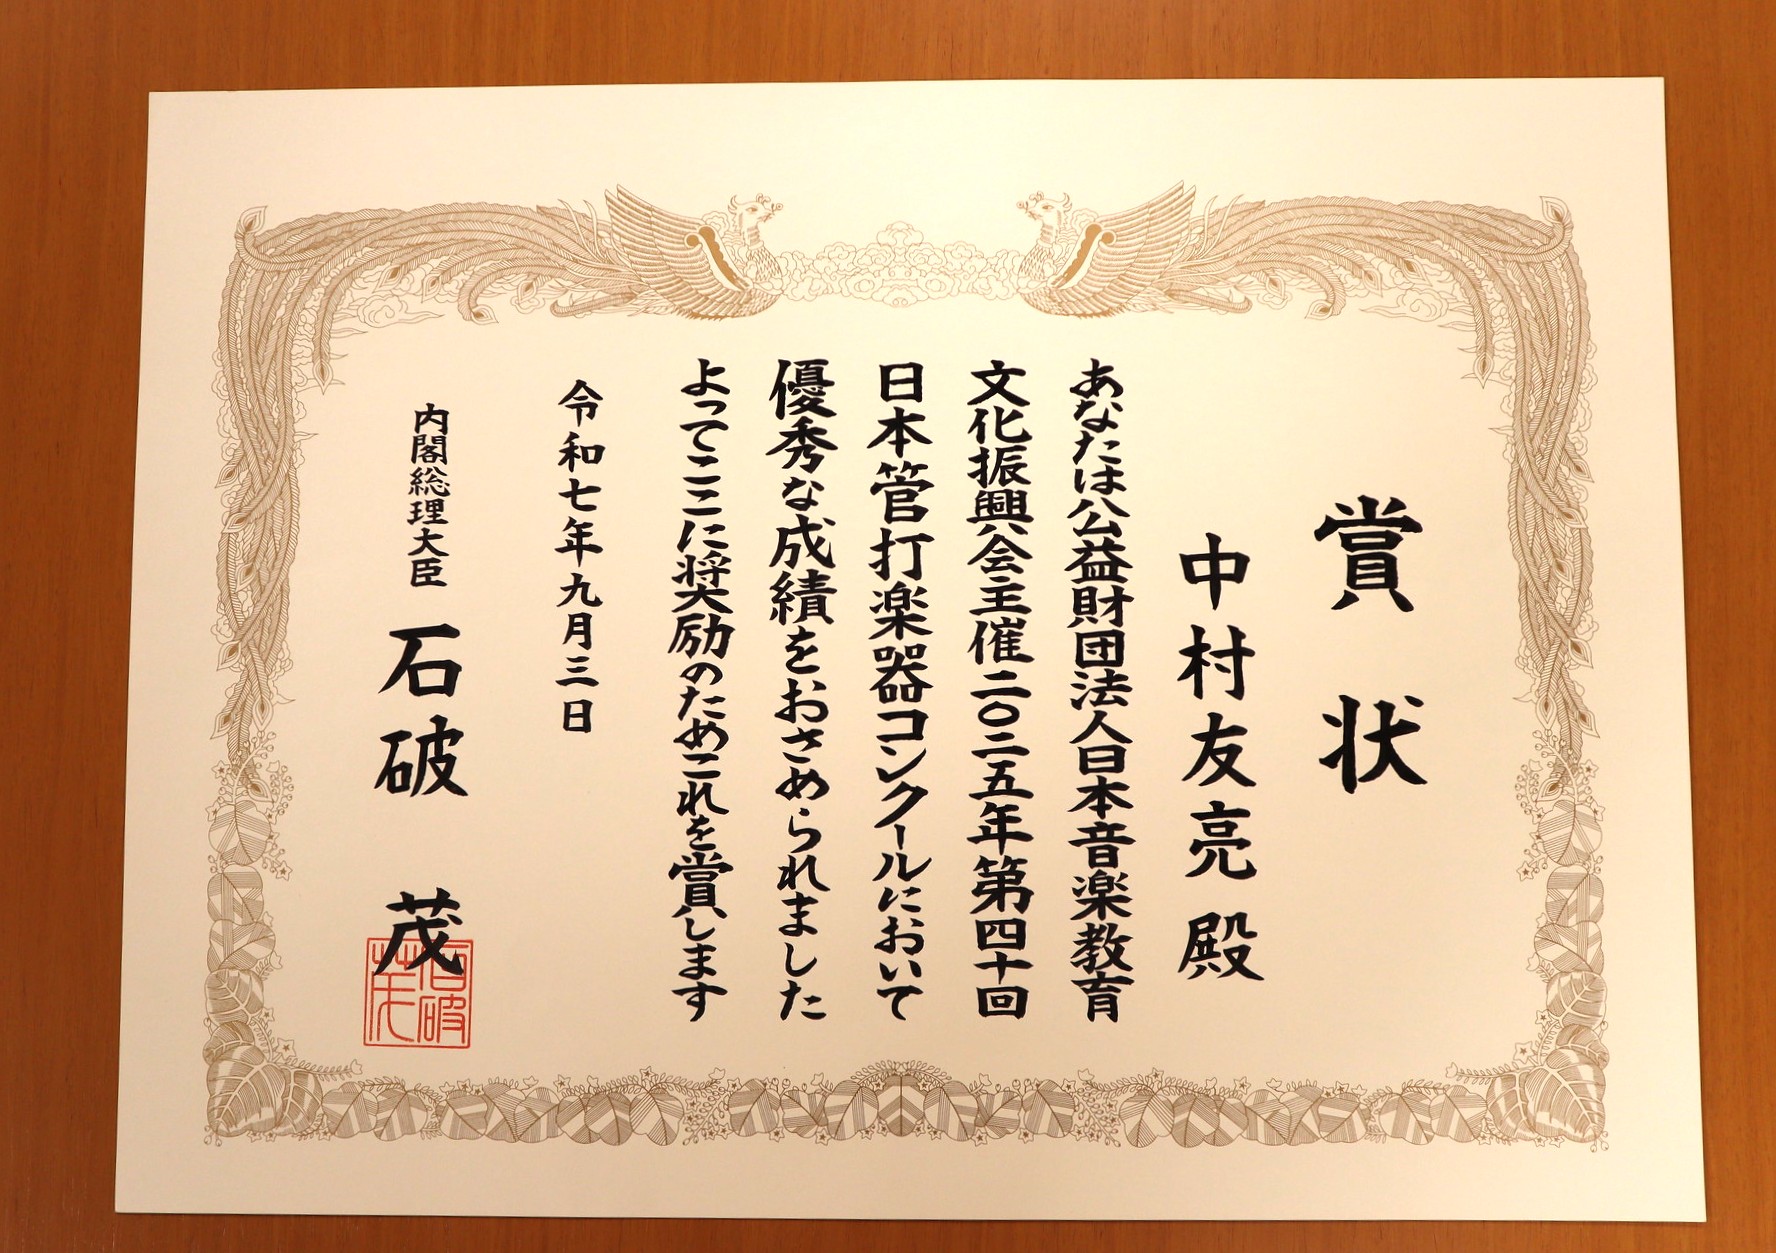 賞状
中村友亮殿
あなたは公益財団法人日本音楽教育
文化振興会主催二〇二五年第四十回
日本管打楽器コンクールにおいて
優秀な成績をおさめられました
よってここに奨励のためこれを賞します
令和七年九月三日
内閣総理大臣 石破 茂
石破
茂